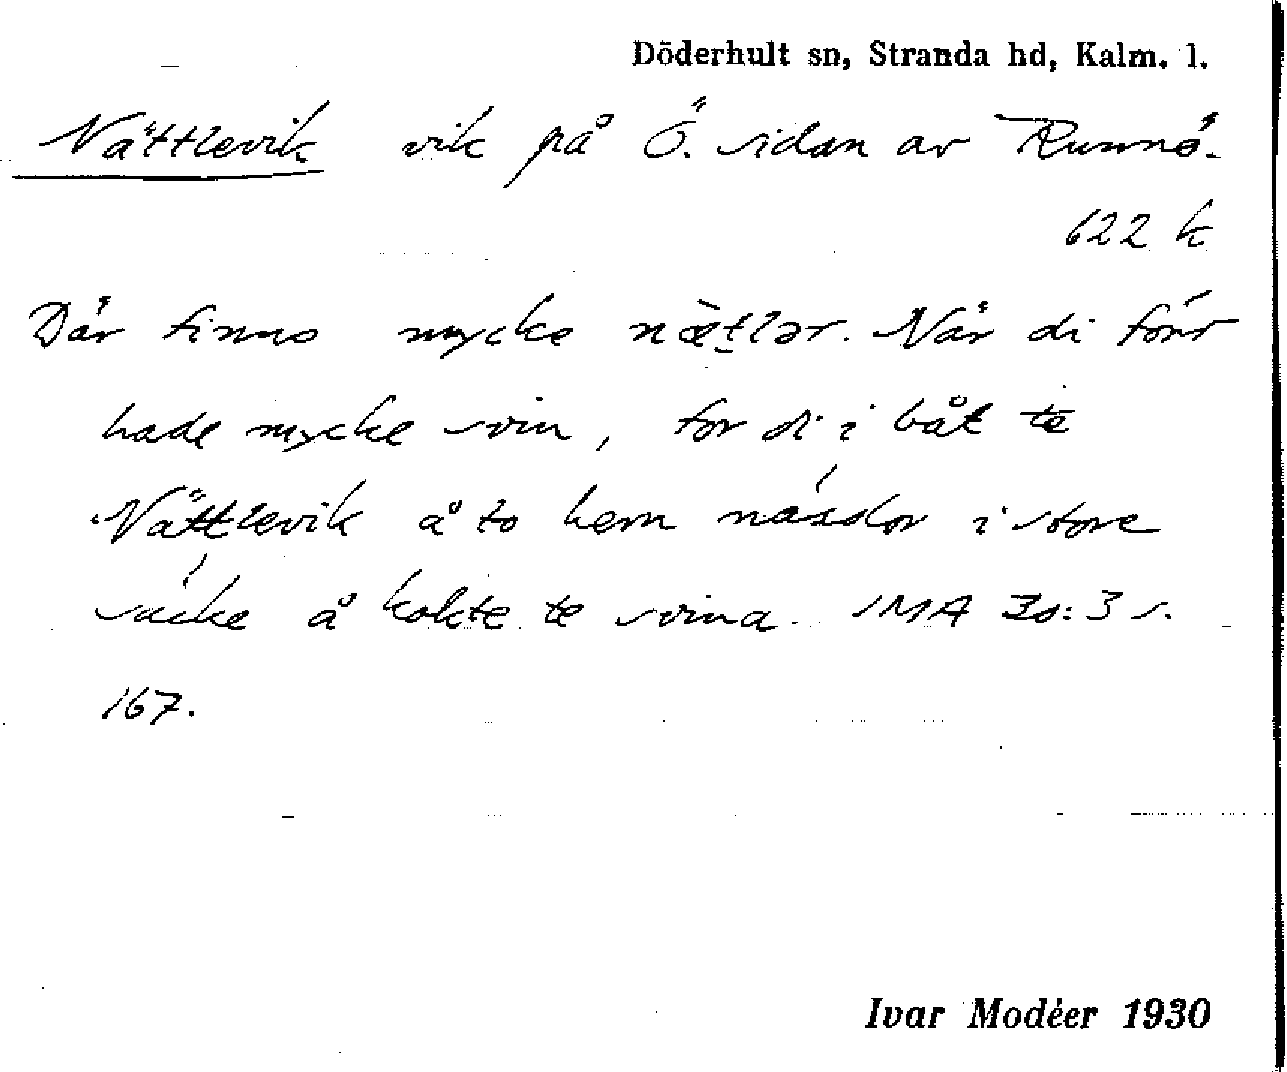 Döderhult sn, Stranda hd, Kalm. l.
Nättlevik vik på Ö. sidan av Runnö.
622 k
Där finns mycke nætlər. När di förr
hade mycke svin, for di i båt te
Nättlevik å to hem nässlor i store
säcke å kokte te svina. IMA 30:3 s.
167.
Ivar Modéer 1930